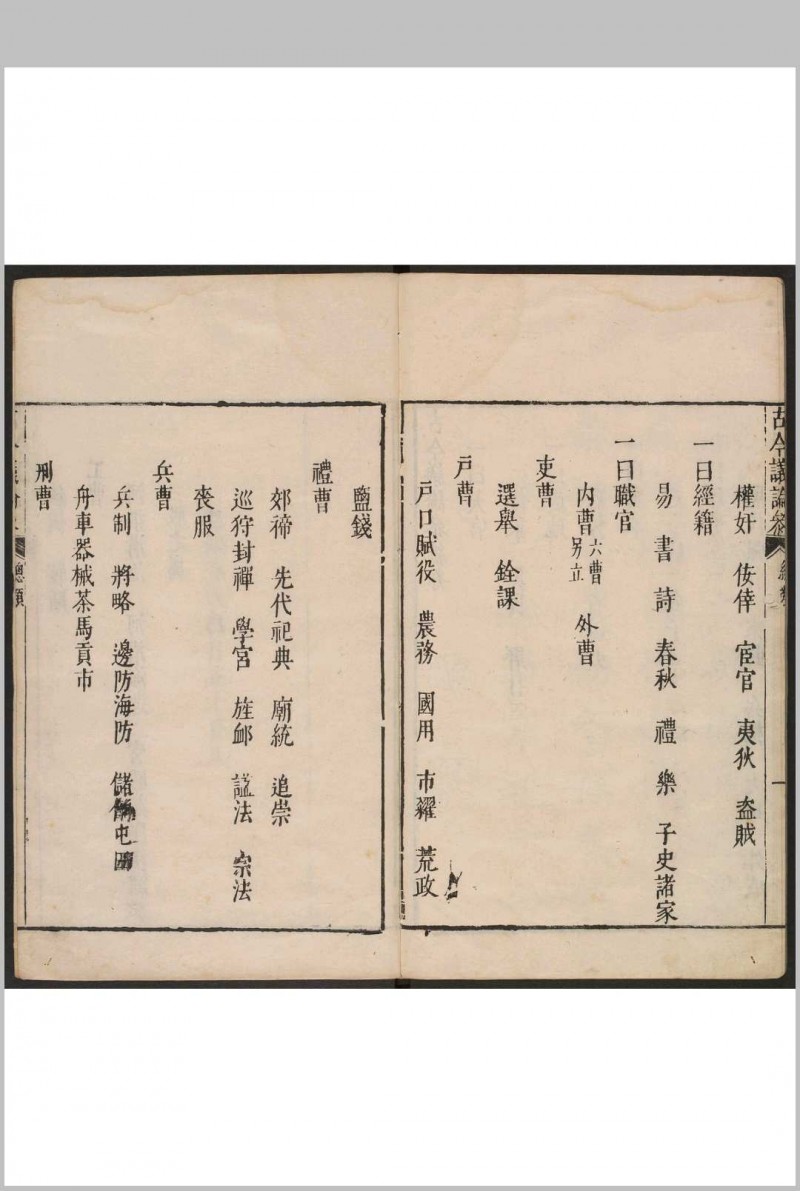 古今議論參
總類
一
權奸 佞倖 宦官 夷狄 盗賊
一曰經籍
易 書 詩 春秋 禮 樂 子史諸家
一曰職官
内曹六曹另立 外曹
吏曹
選舉 銓課
戸曹
戸口賦役 農務 國用 市糴 荒政
鹽錢
禮曹
郊禘 先代祀典 廟統 追崇
巡狩封禪 學宮 旌䘏 諡法 宗法
喪服
兵曹
兵制 將略 邊防海防 儲 屯田
舟車器械茶馬貢市
刑曹
總類